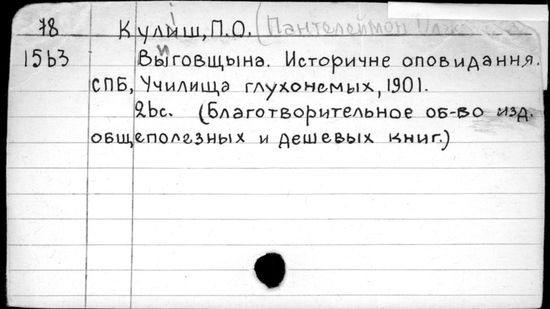 78 Кулиш, П.О. (Пантелеймон
15b3 Выговщына. Историчне оповидання.
СПБ, Училища глухонемых, 1901.
2bс. (Благотворительное об-во изд.
общеполезных и дешевых книг.)